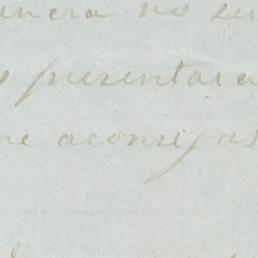 anera no se
s presentara
me aconsejas